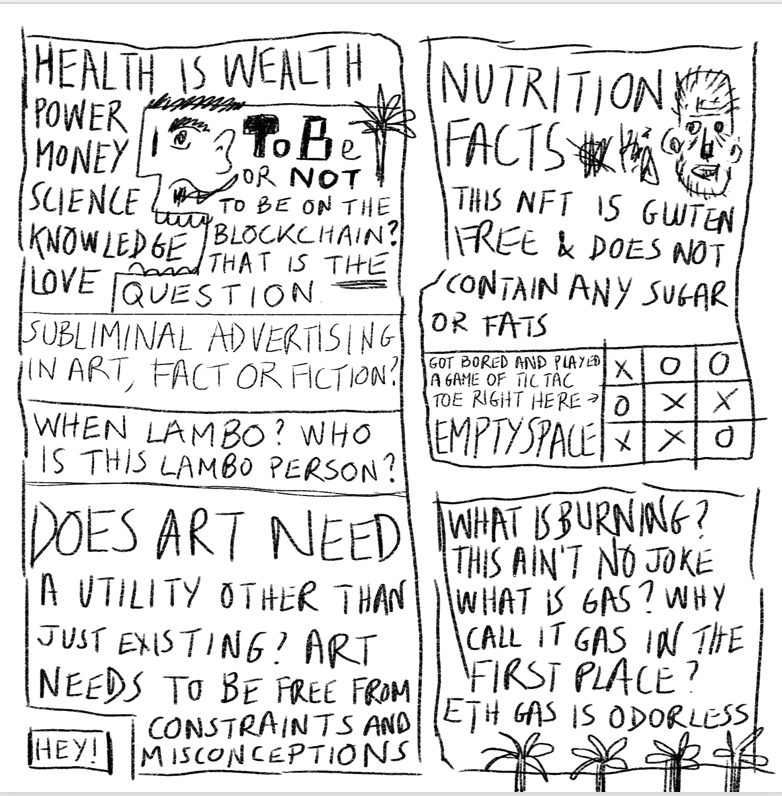 HEALTH IS WEALTH
POWER
MONEY
SCIENCE
KNOWLEDGE
LOVE
To Be
OR NOT
TO BE ON THE
BLOCKCHAIN?
THAT IS THE
QUESTION
SUBLIMINAL ADVERTISING
IN ART, FACT OR FICTION?
WHEN LAMBO? WHO
IS THIS LAMBO PERSON?
DOES ART NEED
A UTILITY OTHER THAN
JUST EXISTING? ART
NEEDS TO BE FREE FROM
CONSTRAINTS AND
MISCONCEPTIONS
HEY!
NUTRITION
FACTS
THIS NFT IS GLUTEN
FREE & DOES NOT
CONTAIN ANY SUGAR
OR FATS
GOT BORED AND PLAYED
A GAME OF TIC TAC
TOE RIGHT HERE →
EMPTY SPACE
X O O
O X X
X X O
WHAT IS BURNING?
THIS AIN'T NO JOKE
WHAT IS GAS? WHY
CALL IT GAS IN THE
FIRST PLACE?
ETH GAS IS ODORLESS